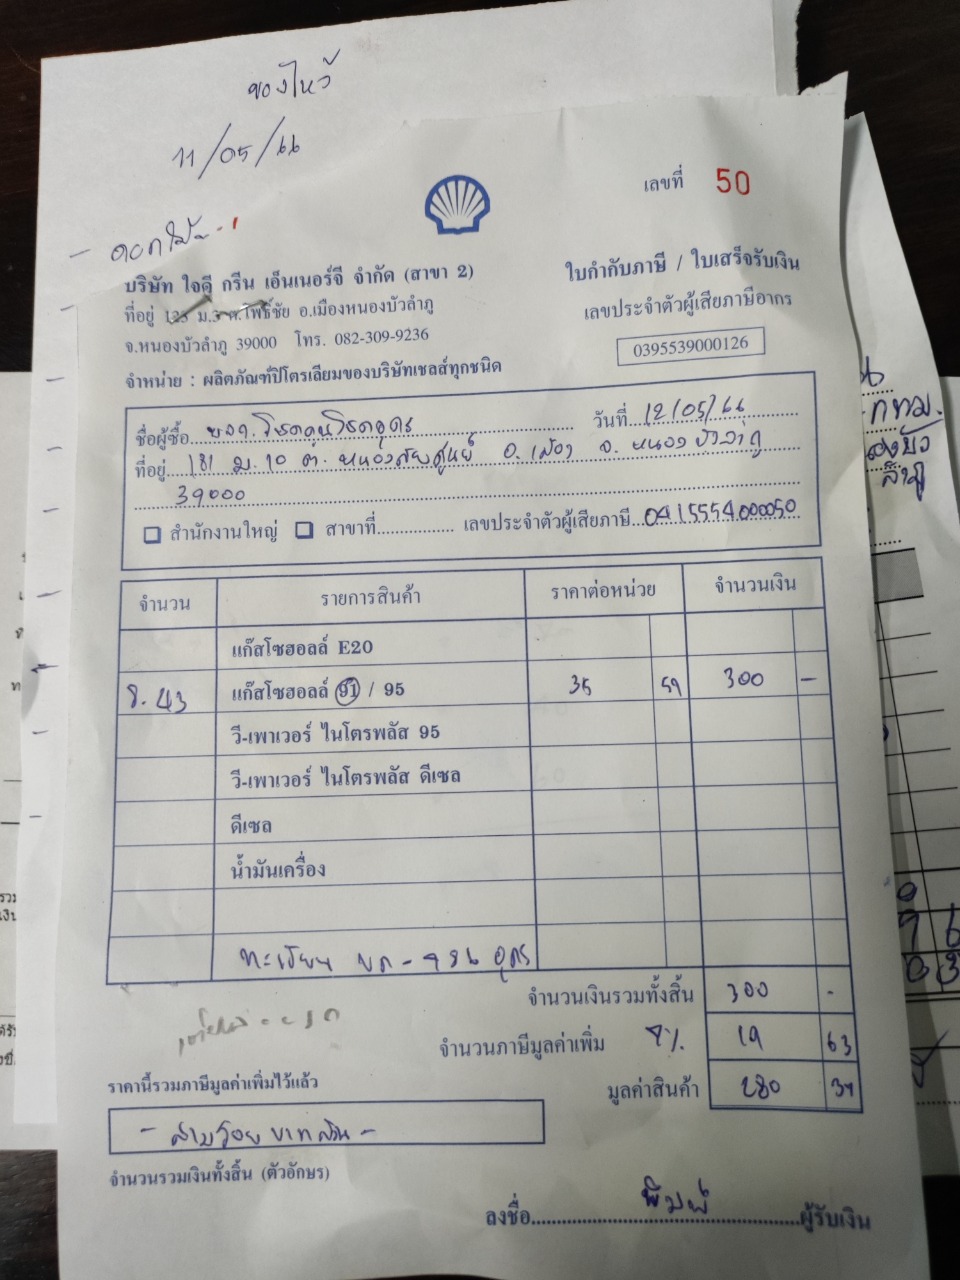 ของไหว้
11/05/66
เลขที่ 50
บริษัท ใจดี กรีน เอ็นเนอร์จี จำกัด (สาขา 2)
ที่อยู่ 123 ม.3 ต.โพธิ์ชัย อ.เมืองหนองบัวลำภู
จ.หนองบัวลำภู 39000 โทร. 082-309-9236
จำหน่าย : ผลิตภัณฑ์ปิโตรเลียมของบริษัทเชลล์ทุกชนิด
ใบกำกับภาษี / ใบเสร็จรับเงิน
เลขประจำตัวผู้เสียภาษีอากร
0395539000126
ชื่อผู้ซื้อ วันที่ 12/05/66
ที่อยู่ 181 ม.10 ต. อ.เมือง จ.หนองบัวลำภู
39000
สำนักงานใหญ่ สาขาที่ เลขประจำตัวผู้เสียภาษี 0415554000050
จำนวน รายการสินค้า ราคาต่อหน่วย จำนวนเงิน
แก๊สโซฮอลล์ E20
8.43 แก๊สโซฮอลล์ 91 / 95 35 59 300 -
วี-เพาเวอร์ ไนโตรพลัส 95
วี-เพาเวอร์ ไนโตรพลัส ดีเซล
ดีเซล
น้ำมันเครื่อง
ทะเบียน อุดร
จำนวนเงินรวมทั้งสิ้น 300 -
จำนวนภาษีมูลค่าเพิ่ม 7% 19 63
ราคานี้รวมภาษีมูลค่าเพิ่มไว้แล้ว
มูลค่าสินค้า 280 37
- สามร้อยบาทถ้วน -
จำนวนรวมเงินทั้งสิ้น (ตัวอักษร)
ลงชื่อ ผู้รับเงิน